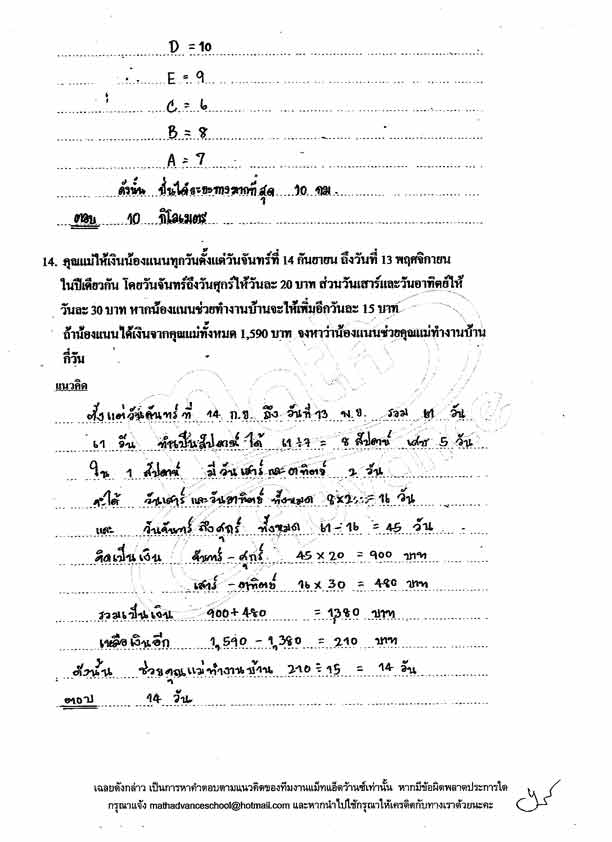 D = 10
∴ E = 9
C = 6
B = 8
A = 7
ดังนั้น ปั่นได้ระยะทางมากที่สุด 10 กม.
ตอบ 10 กิโลเมตร
14. คุณแม่ให้เงินน้องแนนทุกวันตั้งแต่วันจันทร์ที่ 14 กันยายน ถึงวันที่ 13 พฤศจิกายน
ในปีเดียวกัน โดยวันจันทร์ถึงวันศุกร์ให้วันละ 20 บาท ส่วนวันเสาร์และวันอาทิตย์ให้
วันละ 30 บาท หากน้องแนนช่วยทำงานบ้านจะให้เพิ่มอีกวันละ 15 บาท
ถ้าน้องแนนได้เงินจากคุณแม่ทั้งหมด 1,590 บาท จงหาว่าน้องแนนช่วยคุณแม่ทำงานบ้าน
กี่วัน
แนวคิด
ตั้งแต่วันจันทร์ ที่ 14 ก.ย. ถึง วันที่ 13 พ.ย. รวม 61 วัน
61 วัน ทำเป็นสัปดาห์ ได้ 61÷7 = 8 สัปดาห์ เศษ 5 วัน
ใน 1 สัปดาห์ มีวันเสาร์ และอาทิตย์ 2 วัน
จะได้ วันเสาร์ และวันอาทิตย์ ทั้งหมด 8×2 = 16 วัน
และ วันจันทร์ ถึงศุกร์ ทั้งหมด 61-16 = 45 วัน
คิดเป็นเงิน จันทร์ - ศุกร์ 45 × 20 = 900 บาท
เสาร์ - อาทิตย์ 16 × 30 = 480 บาท
รวมเป็นเงิน 900+480 = 1,380 บาท
เหลือเงินอีก 1,590 - 1,380 = 210 บาท
ดังนั้น ช่วยคุณแม่ทำงานบ้าน 210 ÷ 15 = 14 วัน
ตอบ 14 วัน
เฉลยดังกล่าว เป็นการหาคำตอบตามแนวคิดของทีมงานแม็ทแอ็ดว้านซ์เท่านั้น หากมีข้อผิดพลาดประการใด
กรุณาแจ้ง mathadvanceschool@hotmail.com และหากนำไปใช้กรุณาให้เครดิตกับทางเราด้วยนะคะ